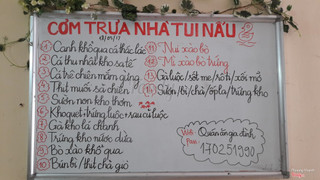 CƠM TRƯA NHÀ TUI NẤU
① Canh khổ qua cá thác lác
② Cá thu nhật kho sa tế
③ Cá trê chiên mắm gừng
④ Thịt muối sả chiên
⑤ Sườn non kho thơm
⑥ Khoquet + trứng luộc + rau củ luộc
⑦ Gà kho lá chanh
⑧ Trứng kho nước dừa
⑨ Bò xào khổ qua
⑩ Bún bì / thịt chả giò
⑪ Nui xào bò
⑫ Mì xào bò trứng
⑬ Gà luộc / sốt me / rôti / xối mỡ
⑭ Sườn / bì / chả / ốpla / trứng kho
Wifi: Quán ăn gia đình
Pas: 170251990